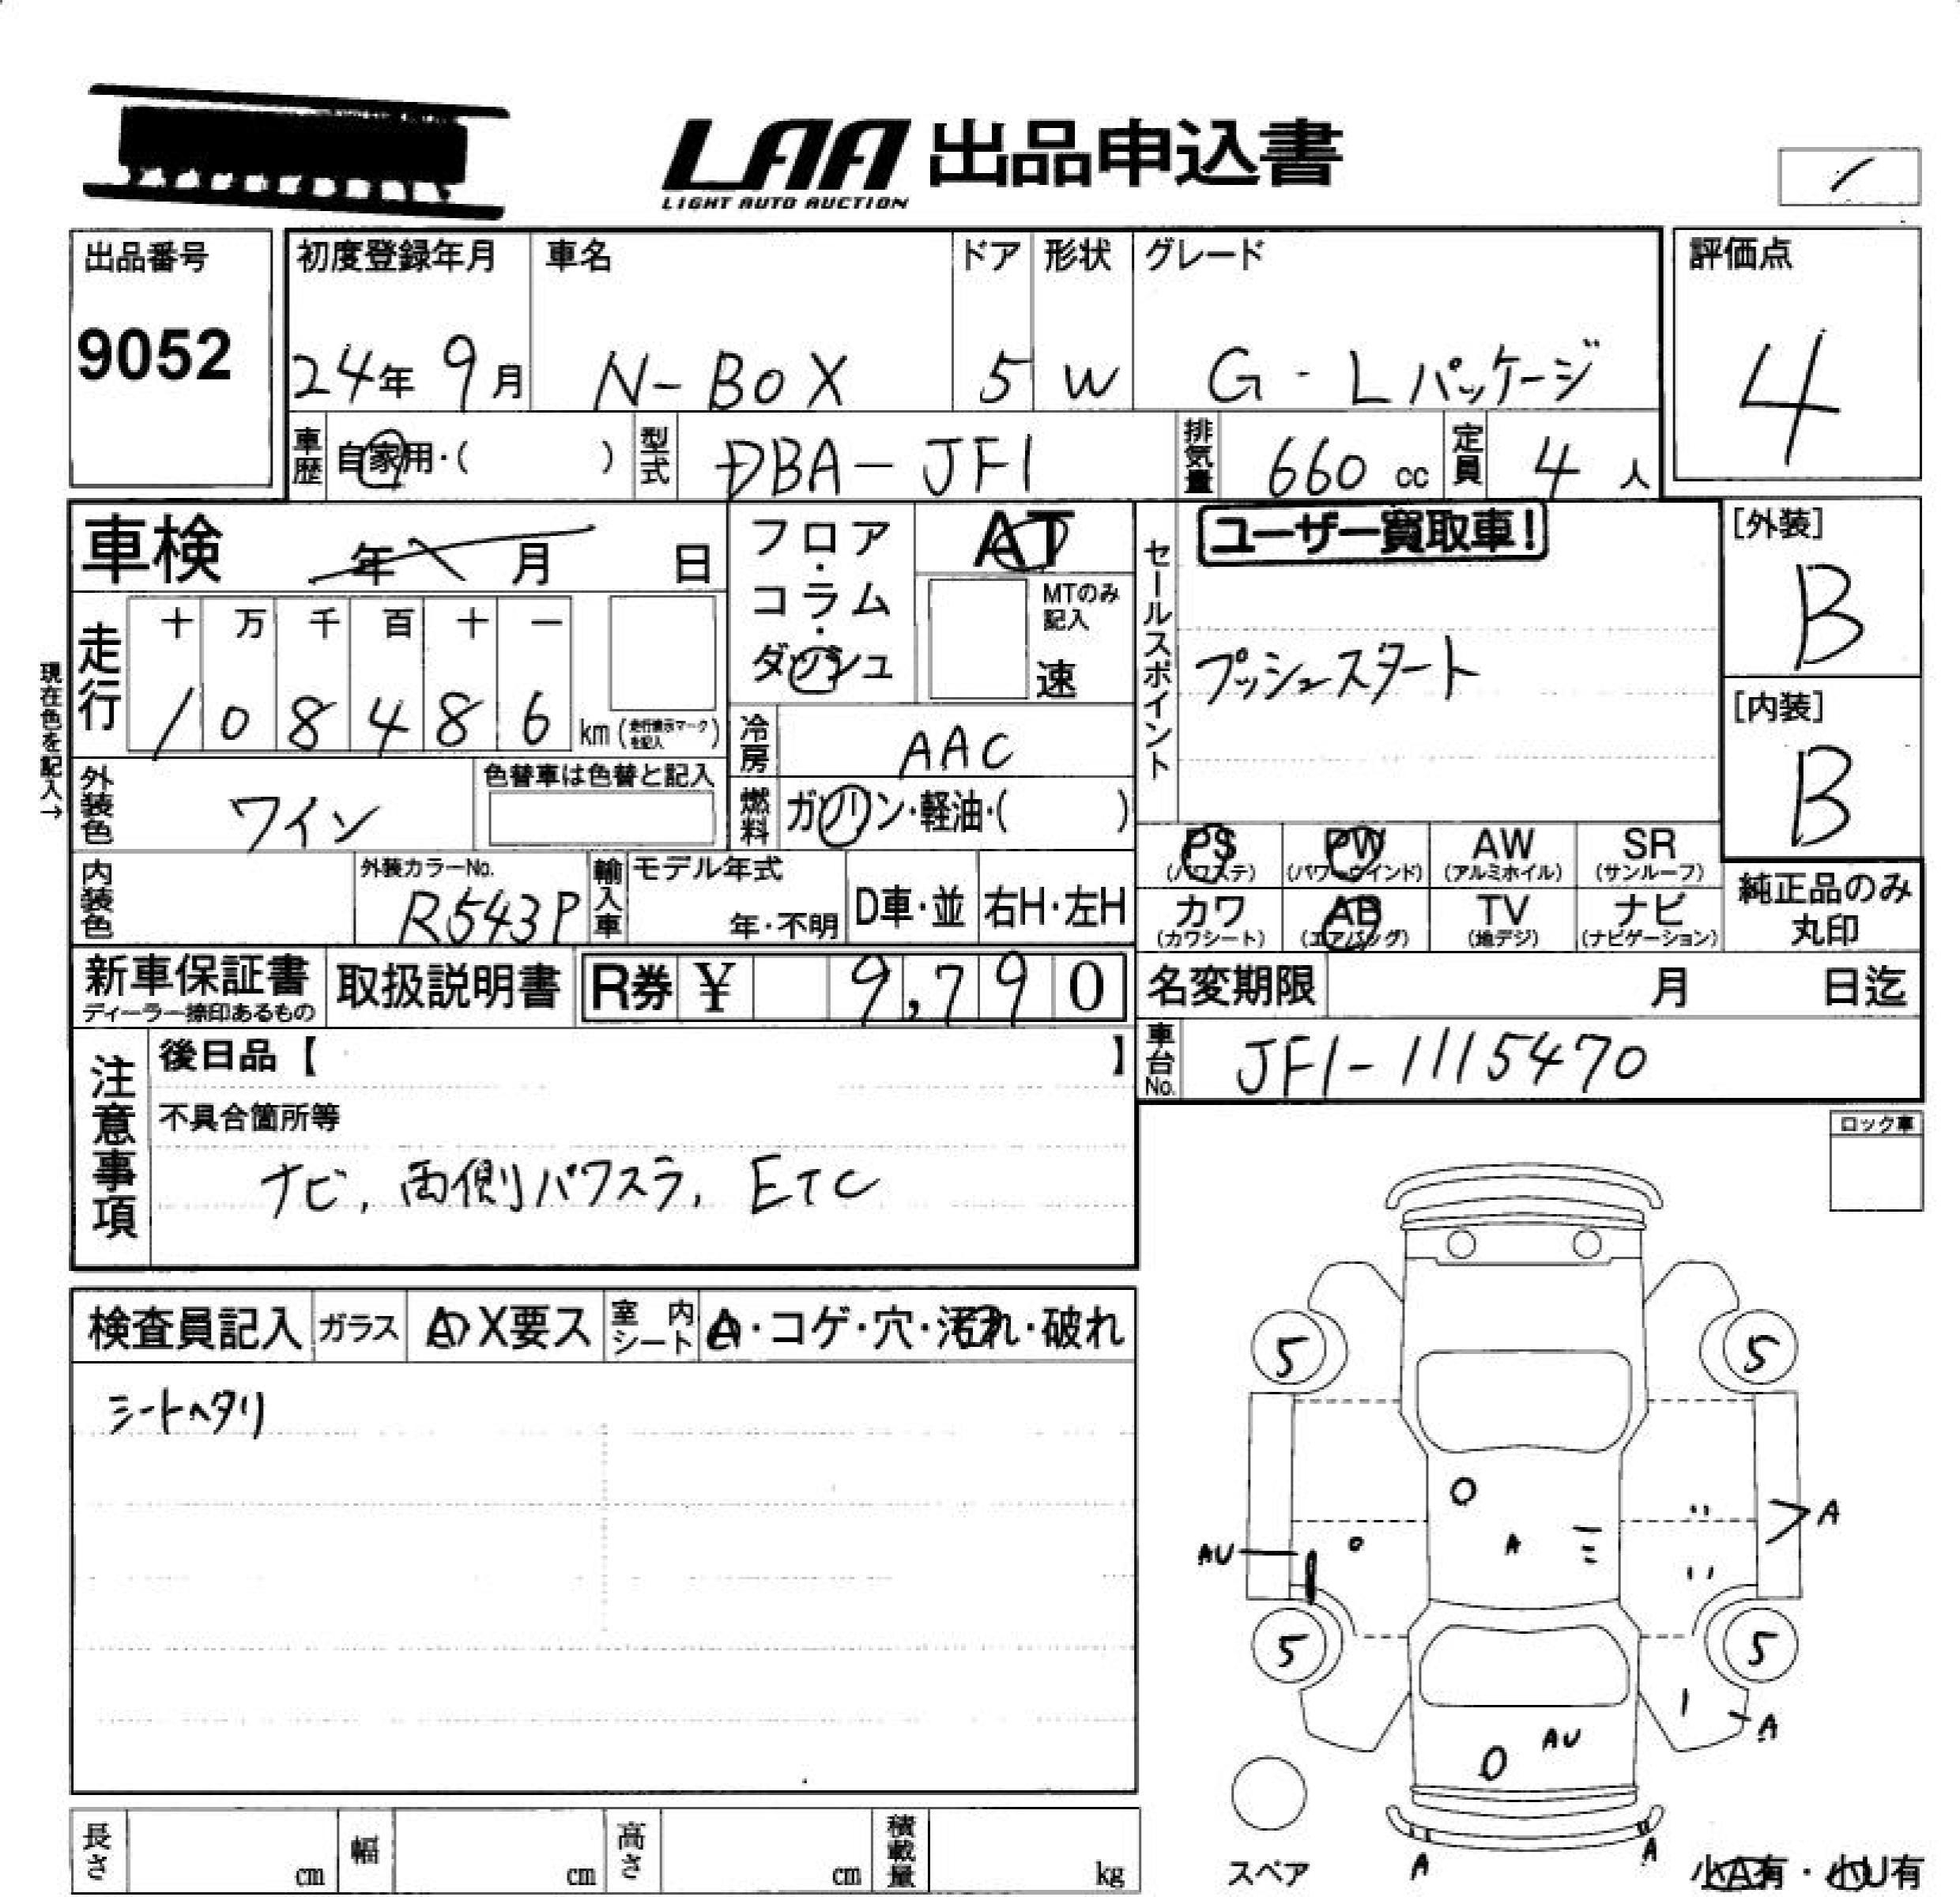 LAA 出品申込書
LIGHT AUTO AUCTION
出品番号
9052
初度登録年月
24年 9月
車名
N-BOX
ドア
5
形状
W
グレード
G-Lパッケージ
評価点
4
車歴
自家用・( )
型式
DBA-JF1
排気量
660 cc
定員
4 人
車検 年 月 日
フロア・コラム・ダッシュ
AT
MTのみ記入
速
セールスポイント
ユーザー買取車!
プッシュスタート
[外装]
B
[内装]
B
現在色を記入→
走行
十 万 千 百 十 一
1 0 8 4 8 6 km (走行表示マークを記入)
冷房
AAC
外装色
ワイン
色替車は色替と記入
燃料
ガソリン・軽油・( )
PS (パワステ)
PW (パワーウインド)
AW (アルミホイル)
SR (サンルーフ)
内装色
外装カラーNo.
R543P
輸入車
モデル年式
年・不明
D車・並
右H・左H
カワ (カワシート)
AB (エアバッグ)
TV (地デジ)
ナビ (ナビゲーション)
純正品のみ丸印
新車保証書
ディーラー捺印あるもの
取扱説明書
R券 ¥ 9,790
名変期限 月 日迄
車台No.
JF1-1115470
注意事項
後日品【 】
不具合箇所等
ナビ, 両側パワスラ, ETC
ロック車
検査員記入
ガラス
A X要ス
室内シート
A・コゲ・穴・汚れ・破れ
シートヘタリ
5 5
A
AU A
5 5
A
AU
A A
スペア
小A有・小U有
長さ cm
幅 cm
高さ cm
積載量 kg